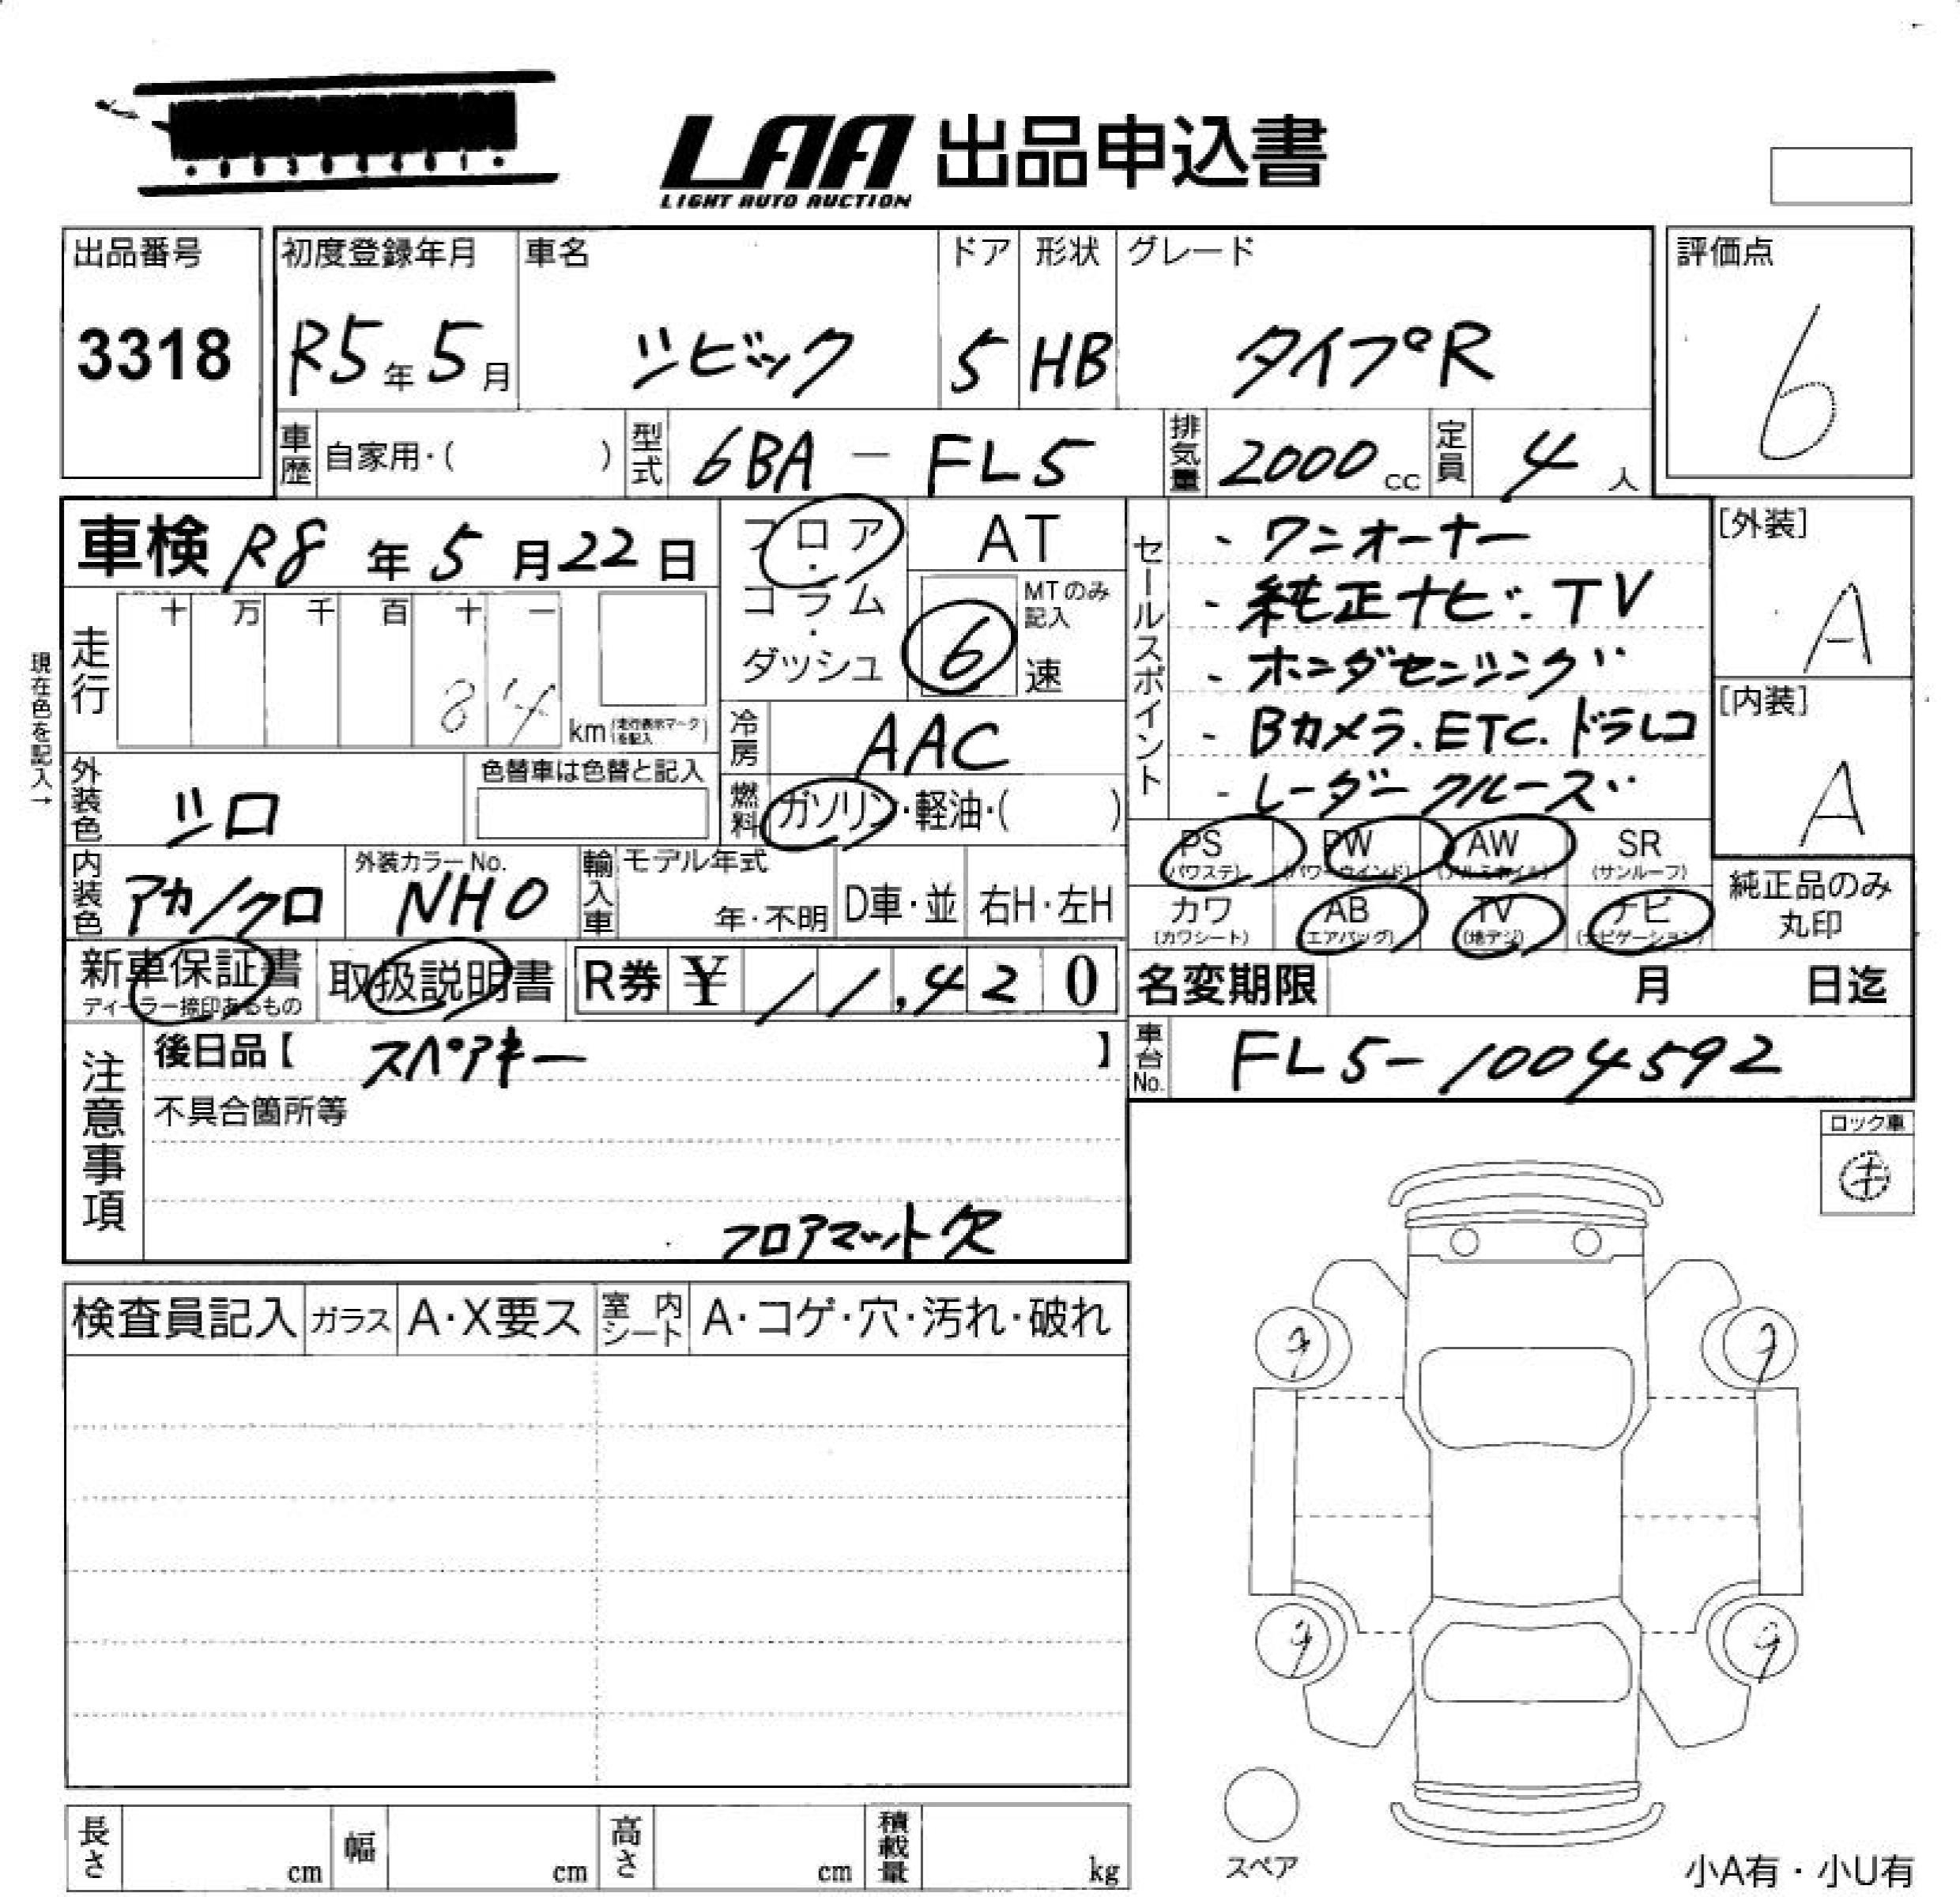 LAA 出品申込書
LIGHT AUTO AUCTION
出品番号 初度登録年月 車名 ドア 形状 グレード 評価点
3318 R5年5月 シビック 5 HB タイプR 6
車歴 自家用・( ) 型式 6BA - FL5 排気量 2000cc 定員 4人
車検 R8年5月22日
フロア・コラム・ダッシュ
AT
6 MTのみ記入 速
走行 十 万 千 百 十 一
84 km (走行表示マークを記入)
現在色を記入→
外装色 シロ 色替車は色替と記入
冷房 AAC
燃料 ガソリン・軽油・( )
内装色 アカ/クロ 外装カラーNo. NH0
輸入車 モデル年式 年・不明 D車・並 右H・左H
セールスポイント
- ワンオーナー
- 純正ナビ.TV
- ホンダセンシング
- Bカメラ.ETC.ドラレコ
- レーダークルーズ
[外装] A
[内装] A
PS (パワステ) PW (パワーウインド) AW (アルミホイル) SR (サンルーフ)
カワ (カワシート) AB (エアバッグ) TV (地デジ) ナビ (ナビゲーション)
純正品のみ丸印
新車保証書 ディーラー捺印あるもの 取扱説明書 R券 ¥ 11,420
名変期限 月 日迄
車台No. FL5-1004592
注意事項
後日品【 スペアキー 】
不具合箇所等
フロアマット欠
ロック車
キ
検査員記入 ガラス A・X要ス 室内シート A・コゲ・穴・汚れ・破れ
9 9
9 9
スペア
長さ cm 幅 cm 高さ cm 積載量 kg
小A有・小U有